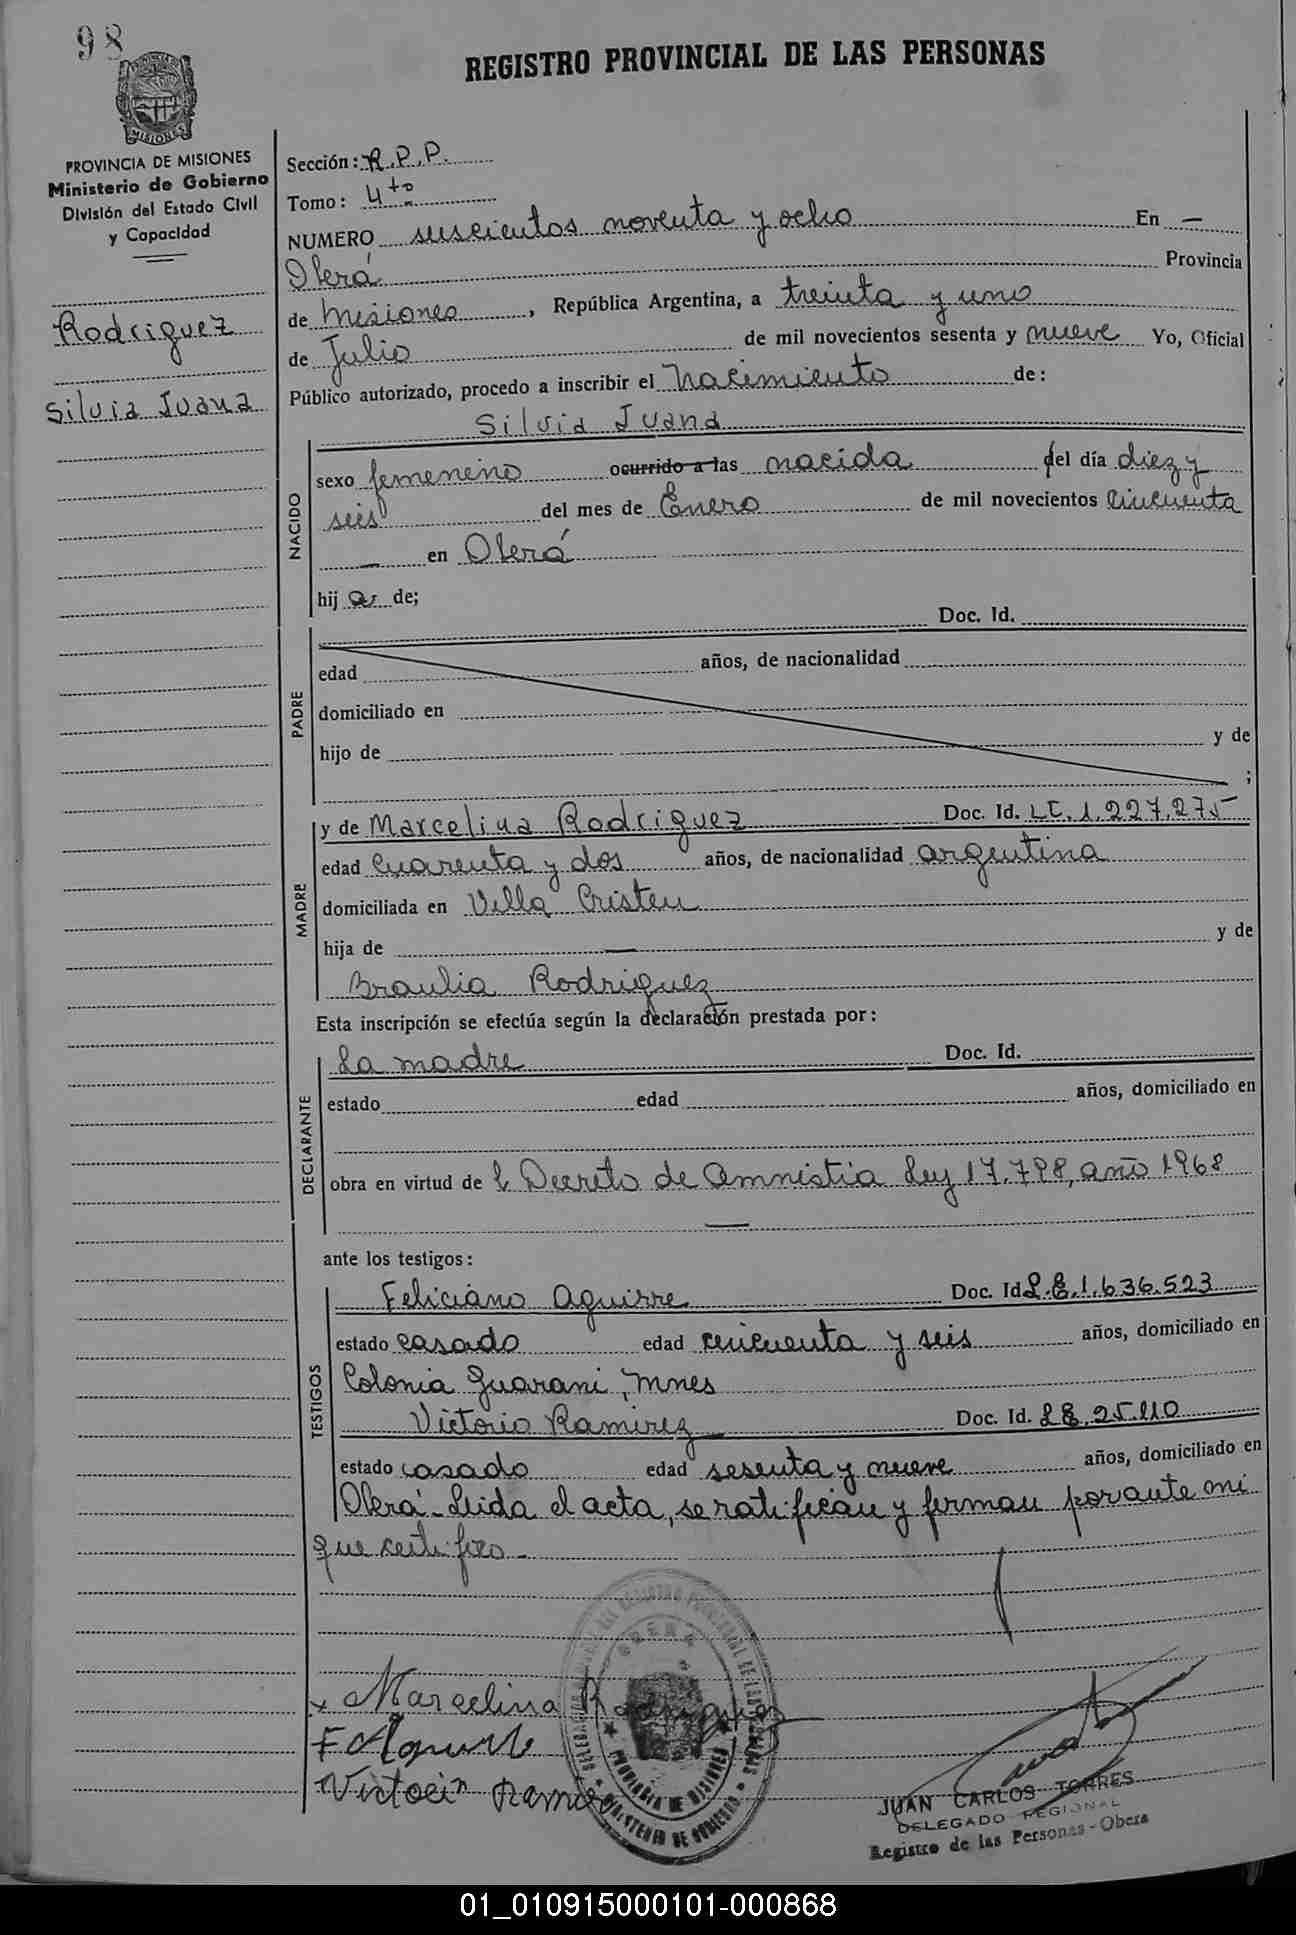 98
REGISTRO PROVINCIAL DE LAS PERSONAS
MISIONES
PROVINCIA DE MISIONES
Ministerio de Gobierno
División del Estado Civil
y Capacidad
Rodriguez
Silvia Juana
Sección: R.P.P.
Tomo: 4to
NUMERO suscientos noventa y ocho En —
Oberá Provincia
de Misiones, República Argentina, a treinta y uno
de Julio de mil novecientos sesenta y nueve Yo, Oficial
Público autorizado, procedo a inscribir el Nacimiento de:
Silvia Juana
NACIDO
sexo femenino ocurrido a las nacida del día diez y
seis del mes de Enero de mil novecientos cincuenta
— en Oberá
hij a de;
PADRE
Doc. Id.
edad años, de nacionalidad
domiciliado en
hijo de y de
;
MADRE
y de Marcelina Rodriguez Doc. Id. LC. 1.227.275
edad cuarenta y dos años, de nacionalidad argentina
domiciliada en Villa Cristen
hija de — y de
Braulia Rodriguez
Esta inscripción se efectúa según la declaración prestada por:
DECLARANTE
La madre Doc. Id.
estado edad años, domiciliado en
obra en virtud de l Decreto de Amnistia Ley 17.798, año 1968
—
ante los testigos:
TESTIGOS
Feliciano Aguirre Doc. Id L.E.1.636.523
estado casado edad cincuenta y seis años, domiciliado en
Colonia Guarani, Mnes
Victorio Ramirez Doc. Id. LE.25.110
estado casado edad sesenta y nueve años, domiciliado en
Oberá - Leida el acta, se ratifican y firman por ante mi
que certifico -
x Marcelina Rodriguez
F Aguirre
Victorio Ramirez
OBERA
PROVINCIA DE MISIONES
MINISTERIO DE GOBIERNO
JUAN CARLOS TORRES
DELEGADO REGIONAL
Registro de las Personas - Obera
01_010915000101-000868